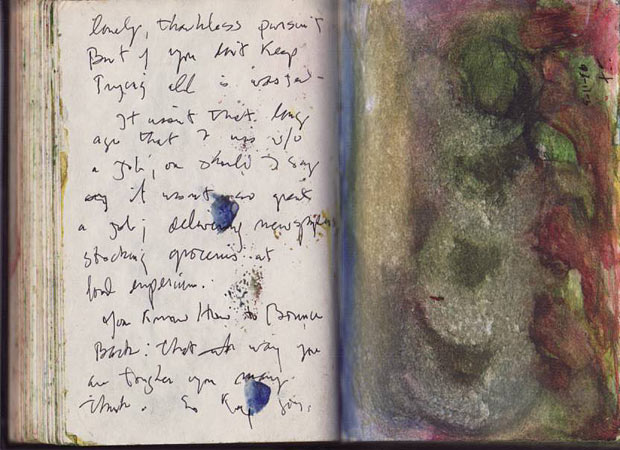 lonely, thankless pursuit
But if you don't keep
Trying all is wasted -
It wasn't that long
ago that I was w/o
a job; or should I say
it wasn't
a job; delivering newspapers
stocking groceries at
food emporium.
You Know How to Bounce
Back: that way you
are tougher you
think. So Keep